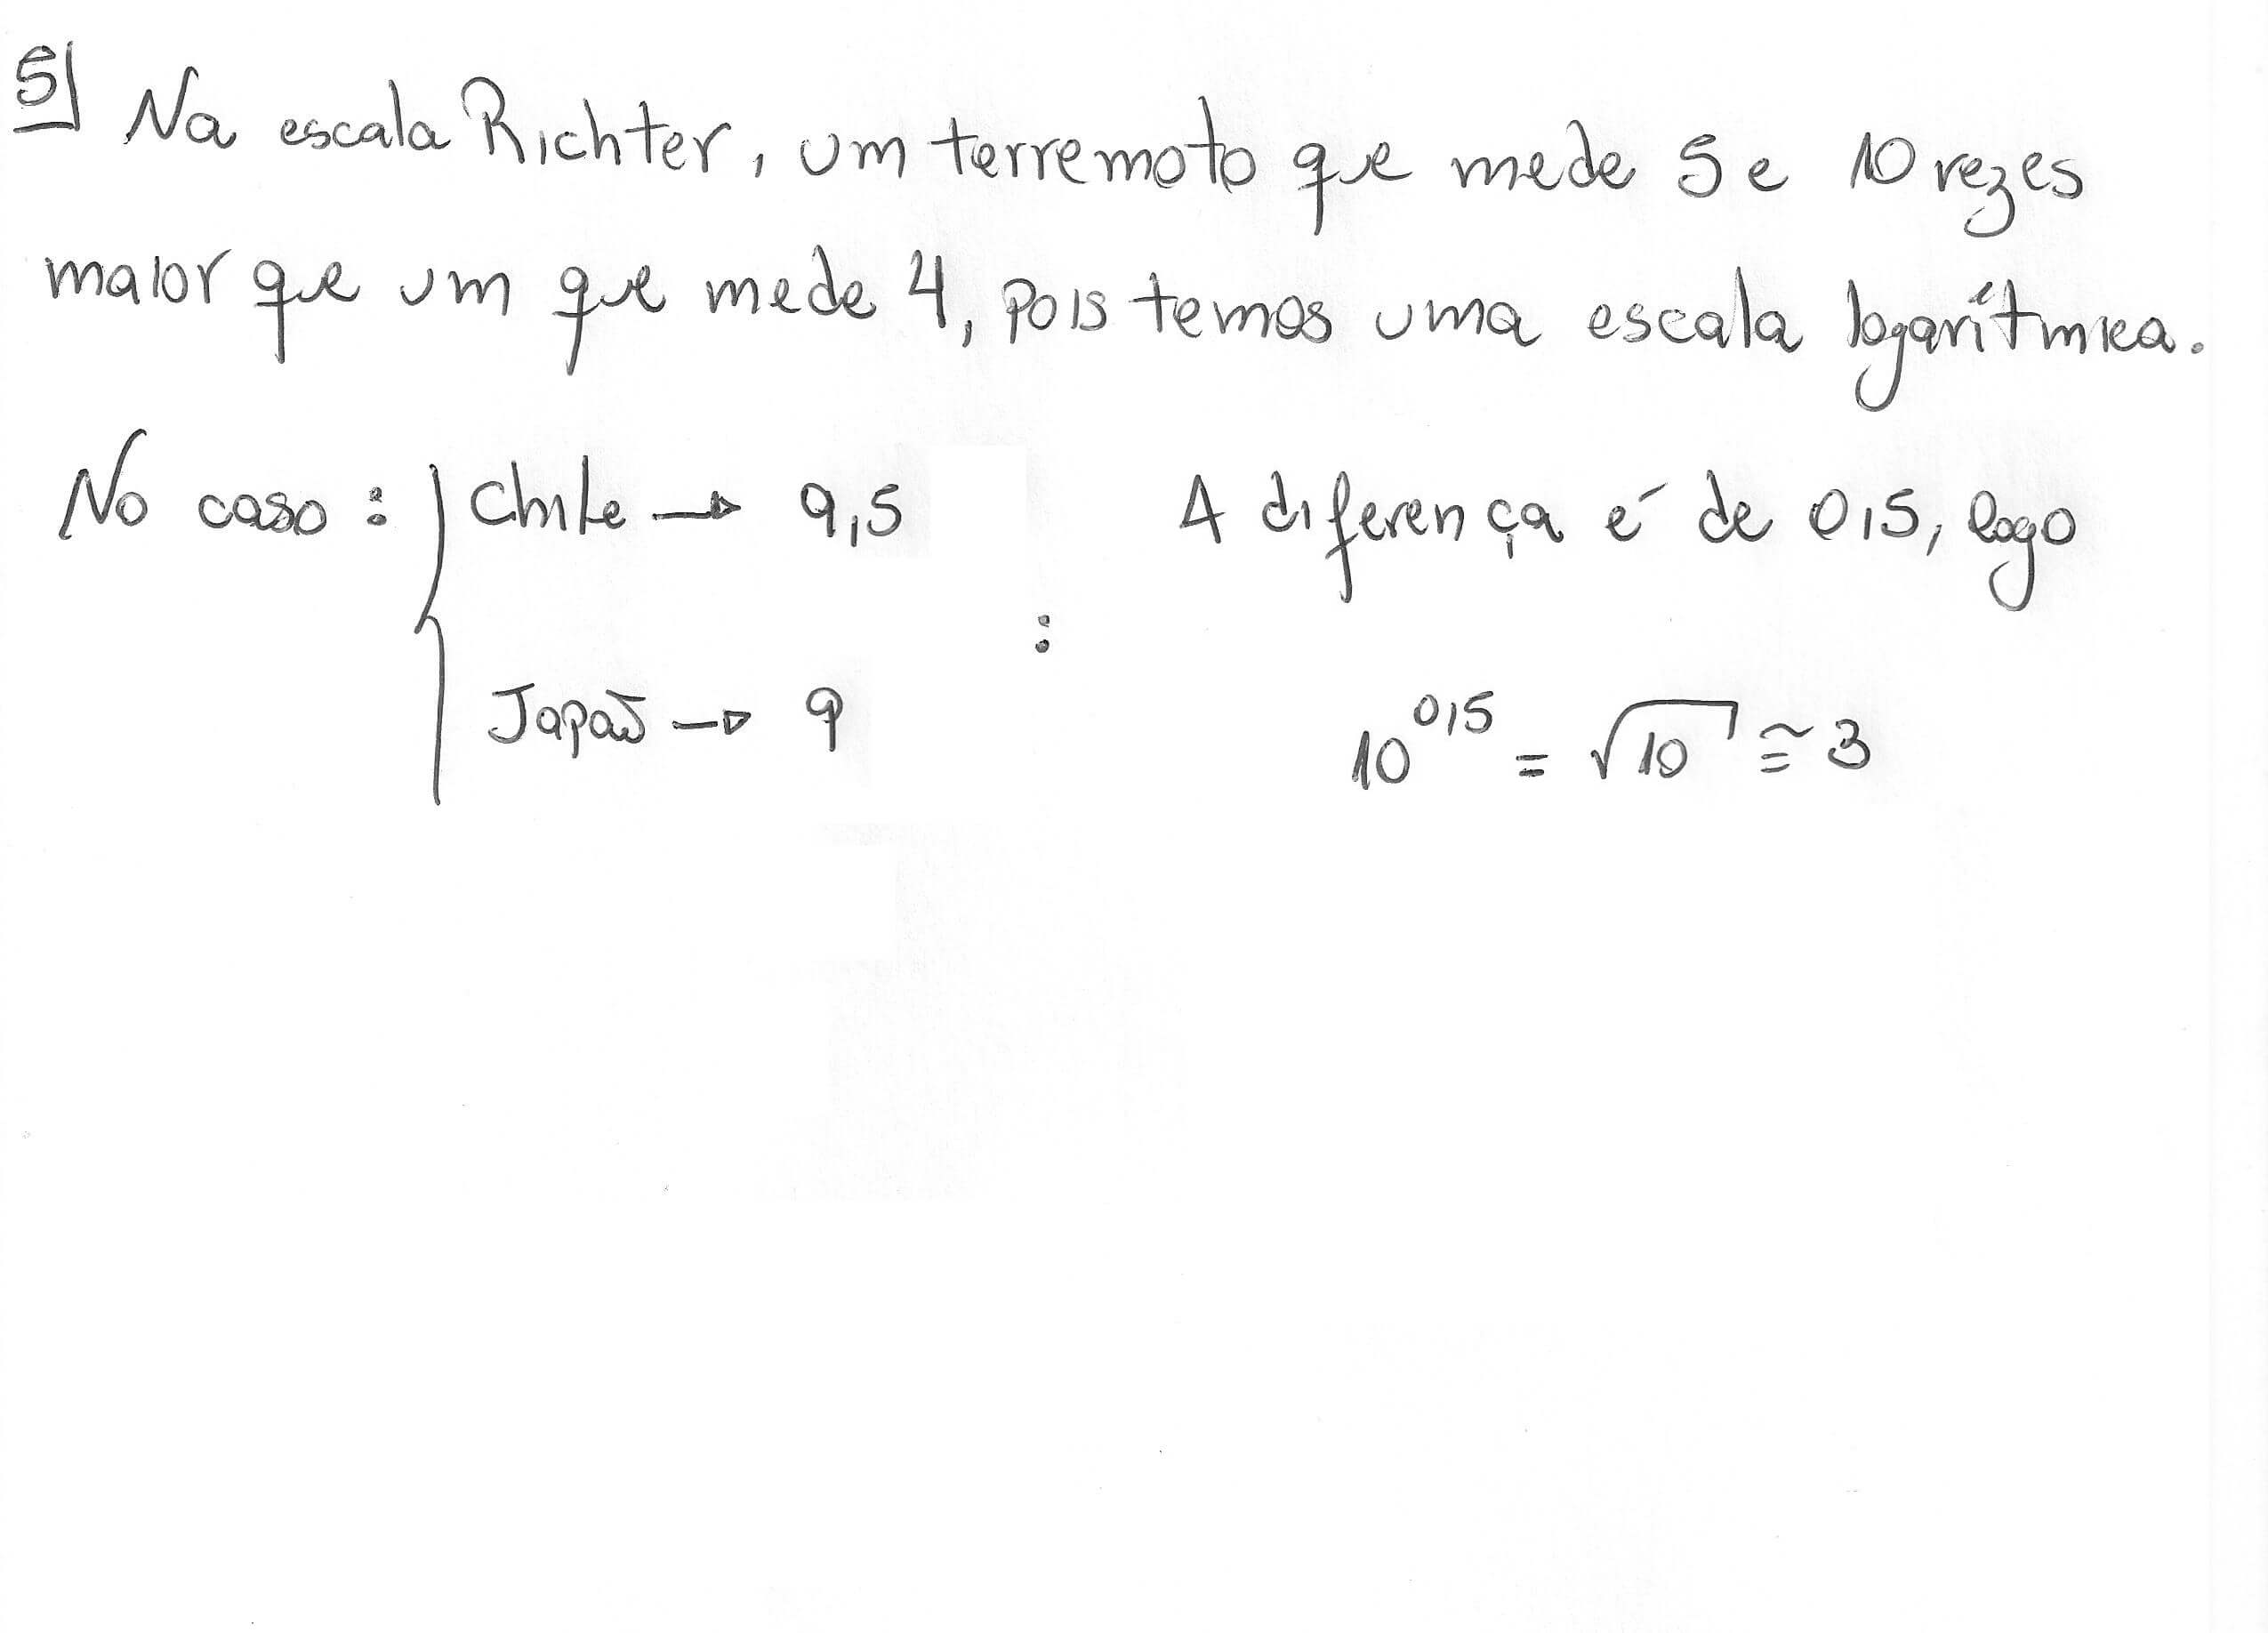 5) Na escala Richter, um terremoto que mede 5 e 10 vezes
maior que um que mede 4, pois temos uma escala logarítmica.
No caso: { Chile → 9,5 A diferença é de 0,5, logo
:
Japão → 9 10^0,5 = √10 ≅ 3